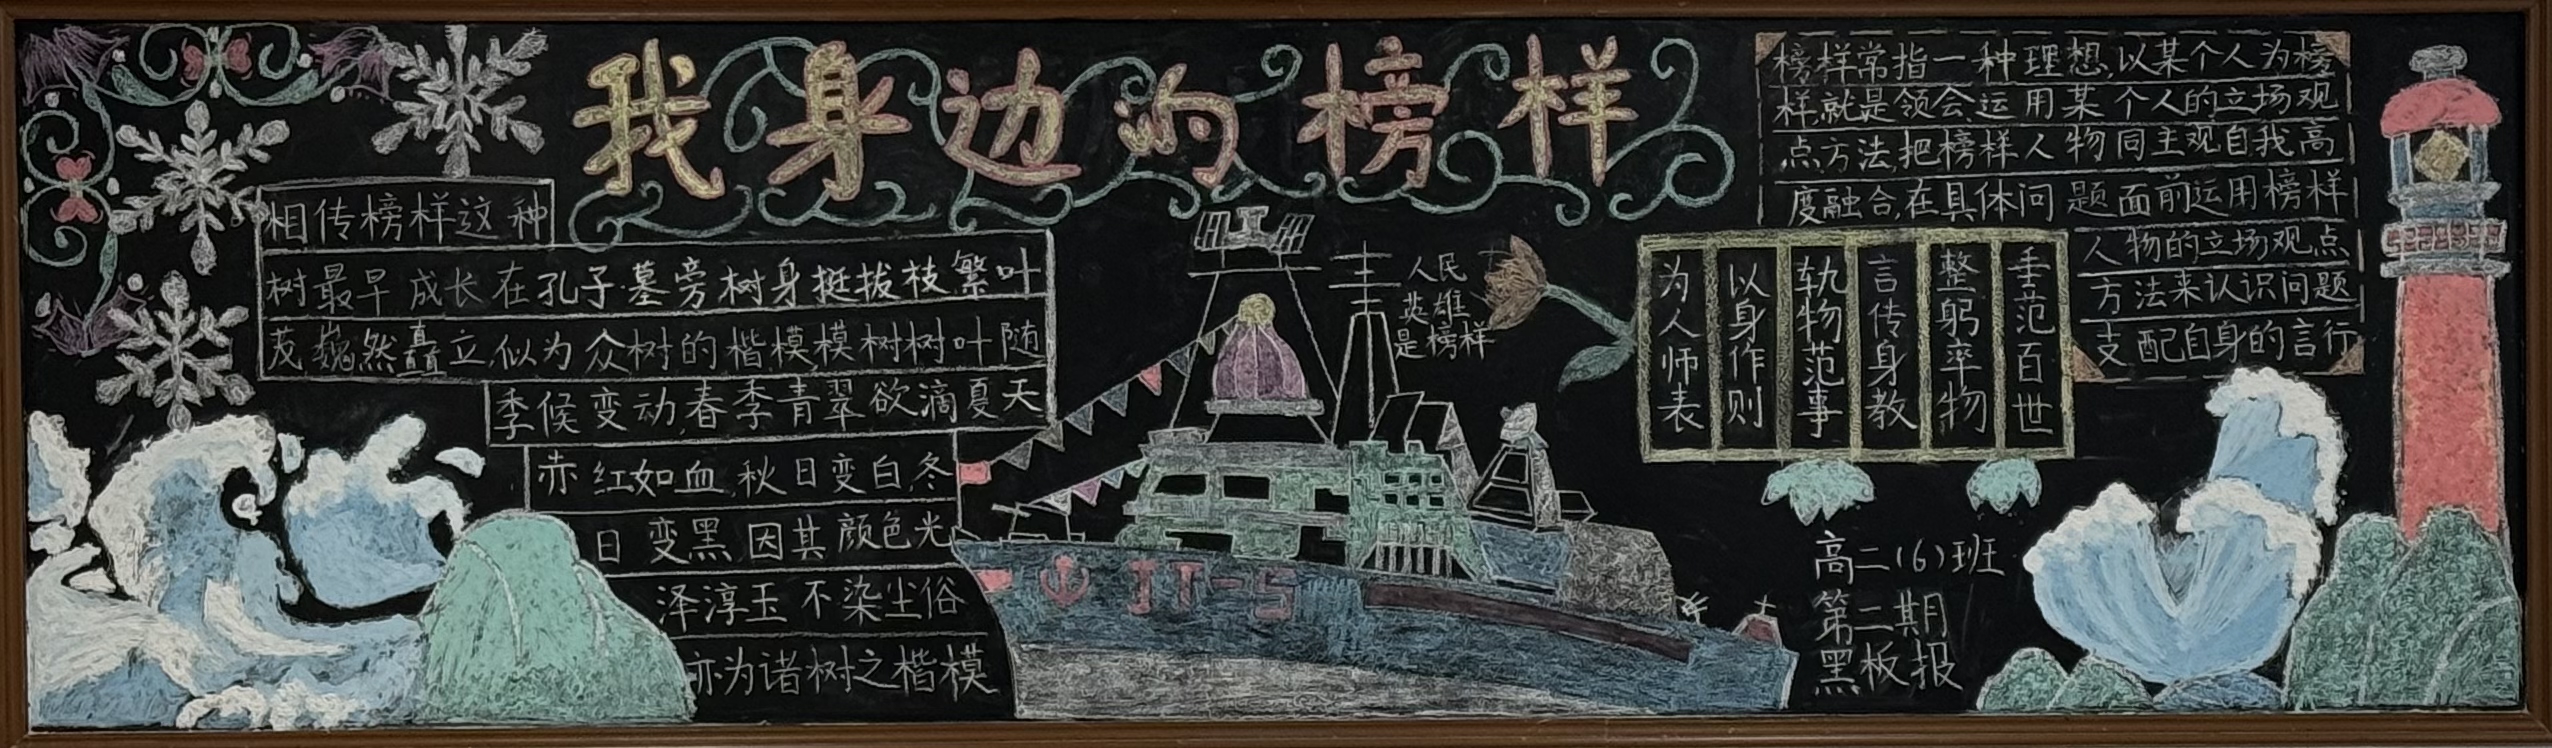 我身边的榜样
相传榜样这种
树最早成长在孔子墓旁树身挺拔枝繁叶
茂巍然矗立,似为众树的楷模,模树树叶随
季候变动,春季青翠欲滴夏天
赤红如血,秋日变白,冬
日变黑,因其颜色光
泽淳玉不染尘俗
亦为诸树之楷模
人民
英雄
是榜样
JT-5
榜样常指一种理想,以某个人为榜
样,就是领会运用某个人的立场观
点方法,把榜样人物同主观自我高
度融合,在具体问题面前运用榜样
人物的立场观点
方法来认识问题
支配自身的言行
为人师表
以身作则
轨物范事
言传身教
整躬率物
垂范百世
高二(6)班
第二期
黑板报